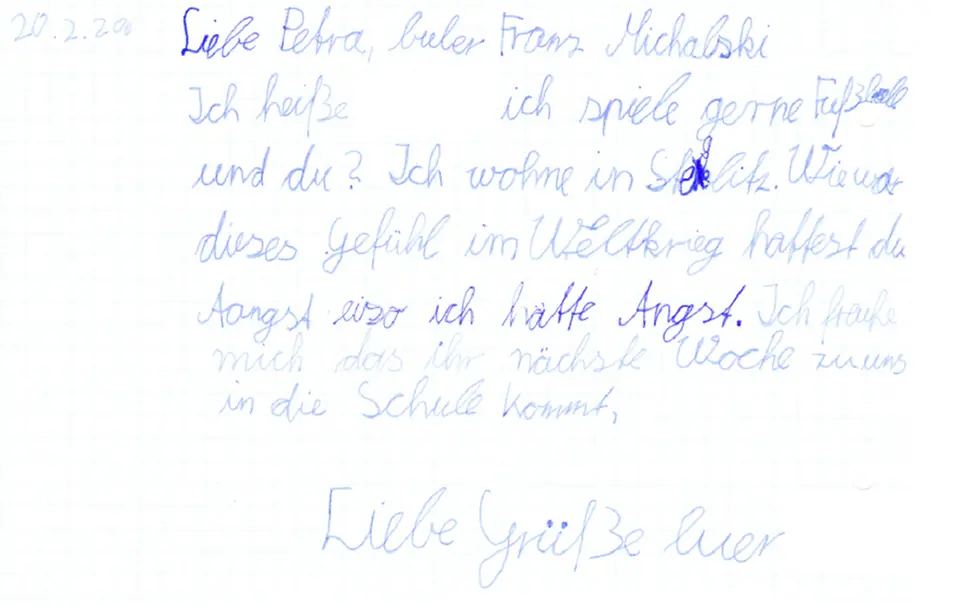 20.2.200 Liebe Petra, buler Franz Michalski
Ich heiße ich spiele gerne Fußball
und du? Ich wohne in Steglitz. Wie war
dieses Gefühl im Weltkrieg hattest du
Aangst eiso ich hätte Angst. Ich fraue
mich das ihr nächste Woche zu uns
in die Schule kommt,
Liebe Grüße euer